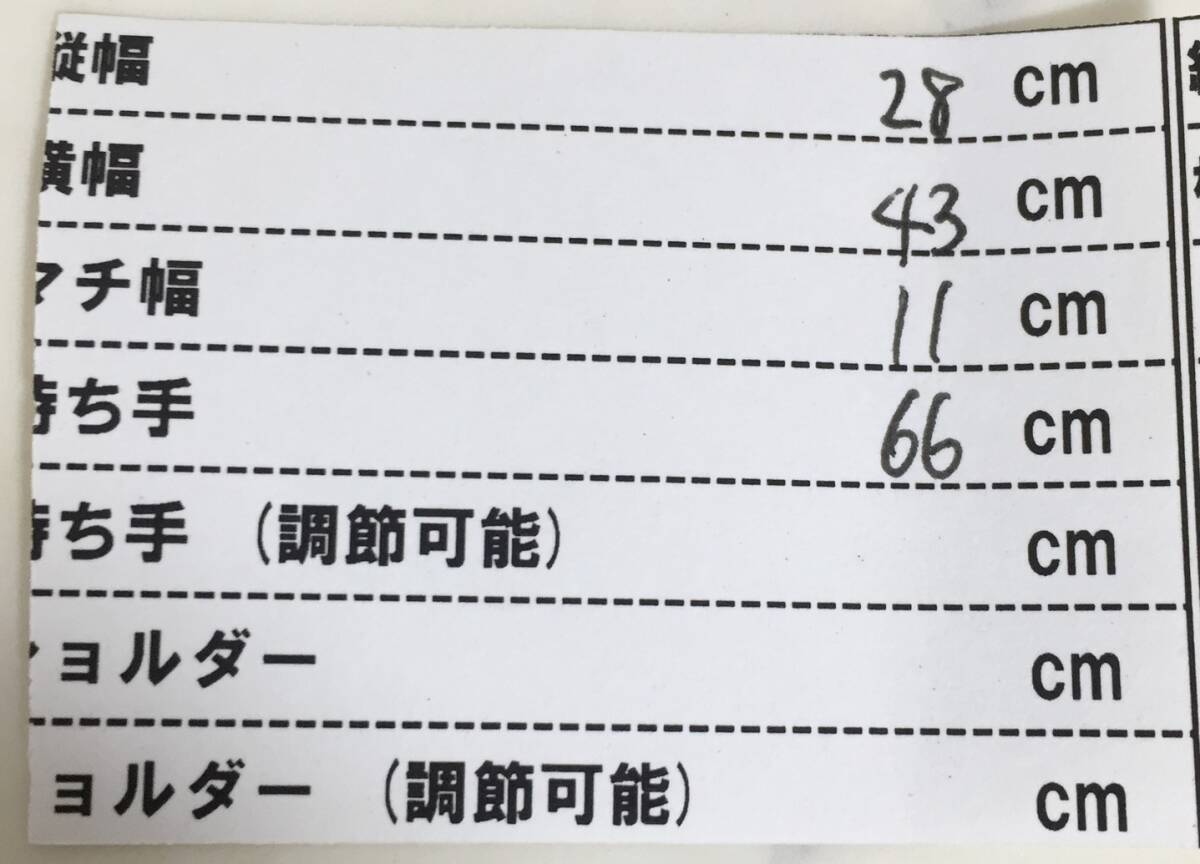 縦幅 28 cm
横幅 43 cm
マチ幅 11 cm
持ち手 66 cm
持ち手 (調節可能) cm
ショルダー cm
ョルダー (調節可能) cm